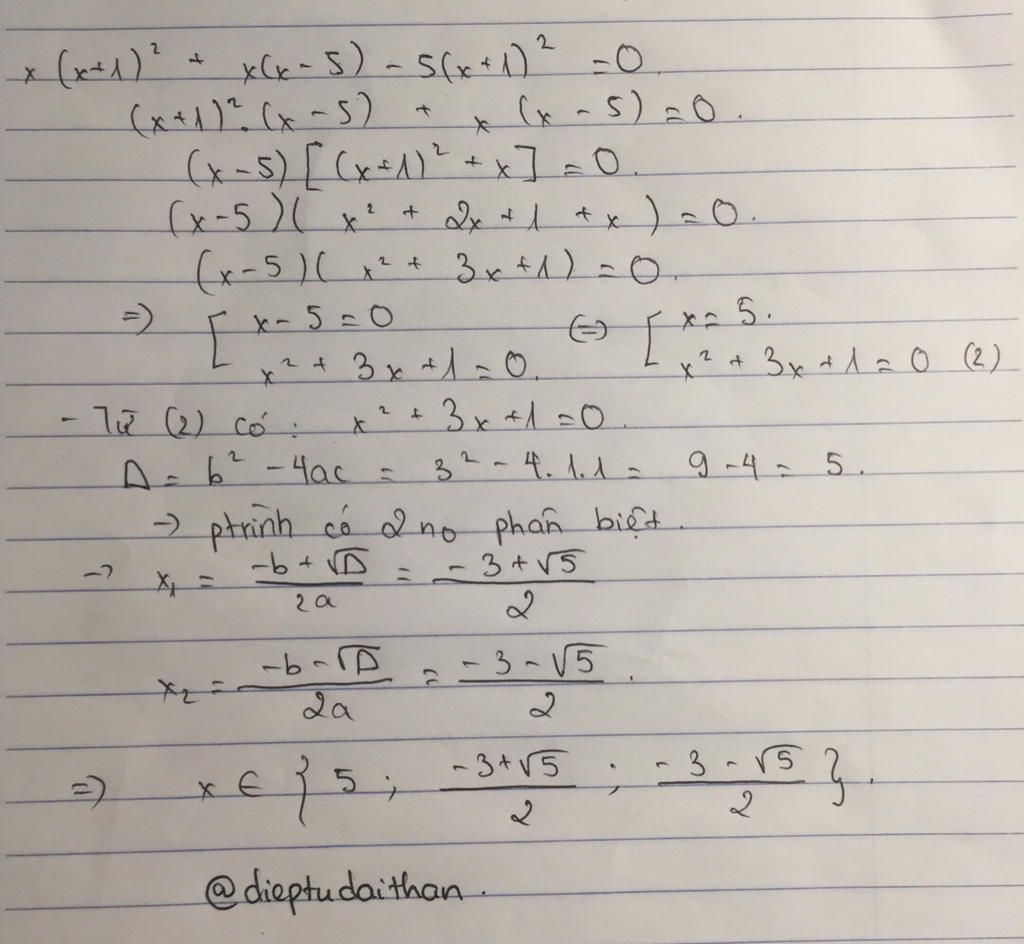 x(x+1)² + x(x-5) - 5(x+1)² = 0.
(x+1)².(x-5) + x(x-5) = 0.
(x-5)[(x+1)² + x] = 0.
(x-5)(x² + 2x + 1 + x) = 0.
(x-5)(x² + 3x + 1) = 0.
=> [ x-5 = 0 <=> [ x = 5.
x² + 3x + 1 = 0. x² + 3x + 1 = 0 (2)
- Từ (2) có: x² + 3x + 1 = 0.
Δ = b² - 4ac = 3² - 4.1.1 = 9 - 4 = 5.
-> ptrình có 2 no phân biệt.
-> x₁ = (-b + √Δ)/2a = (-3 + √5)/2
x₂ = (-b - √Δ)/2a = (-3 - √5)/2.
=> x ∈ { 5 ; (-3+√5)/2 ; (-3-√5)/2 }.
@dieptudaithan.